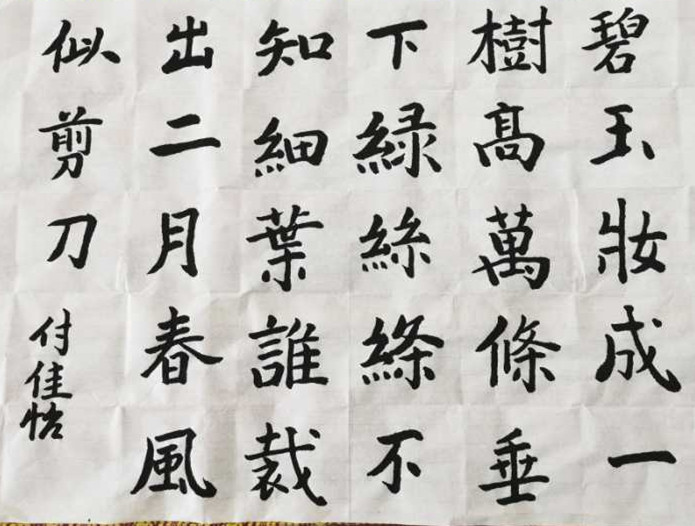 碧玉妝成一
樹高萬條垂
下綠絲絛不
知細葉誰裁
出二月春風
似剪刀
付佳悟